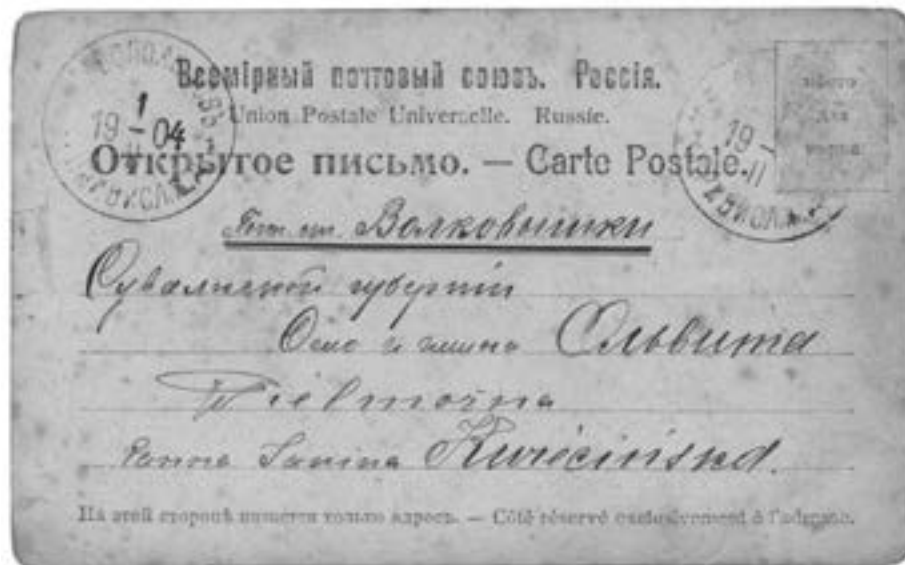 Всемірный почтовый союзъ. Россія.
Union Postale Universelle. Russie.
Открытое письмо. — Carte Postale.
19 1/II 04
19 — II
мѣсто
для
марки
Волковышки
Сувалкской губерніи
и гмина Ольвита
Wielmożna
Panna Janina Kwiecińska.
На этой сторонѣ пишется только адресъ. — Côté réservé exclusivement à l'adresse.